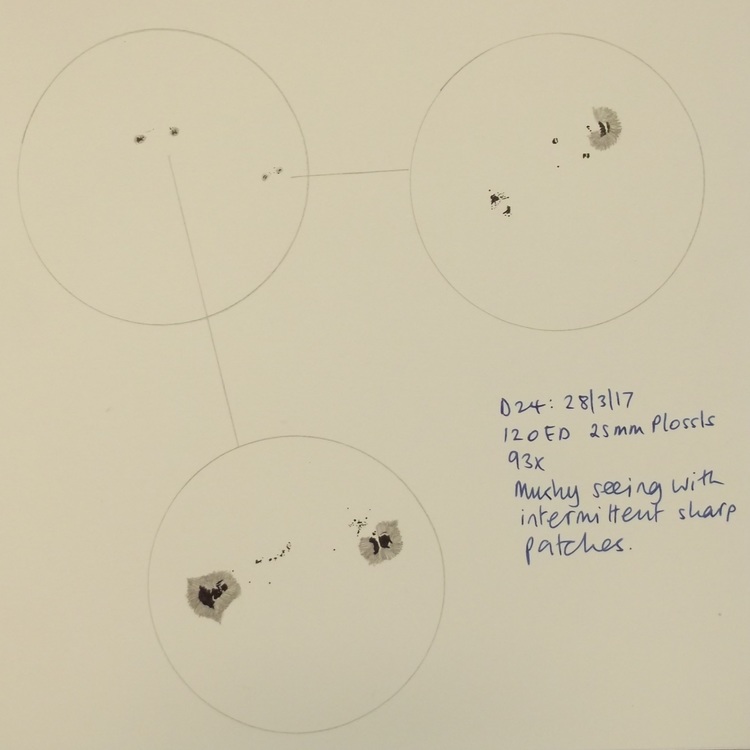 D24: 28/3/17
120ED 25mm Plossls
93x
Mushy seeing with
intermittent sharp
patches.